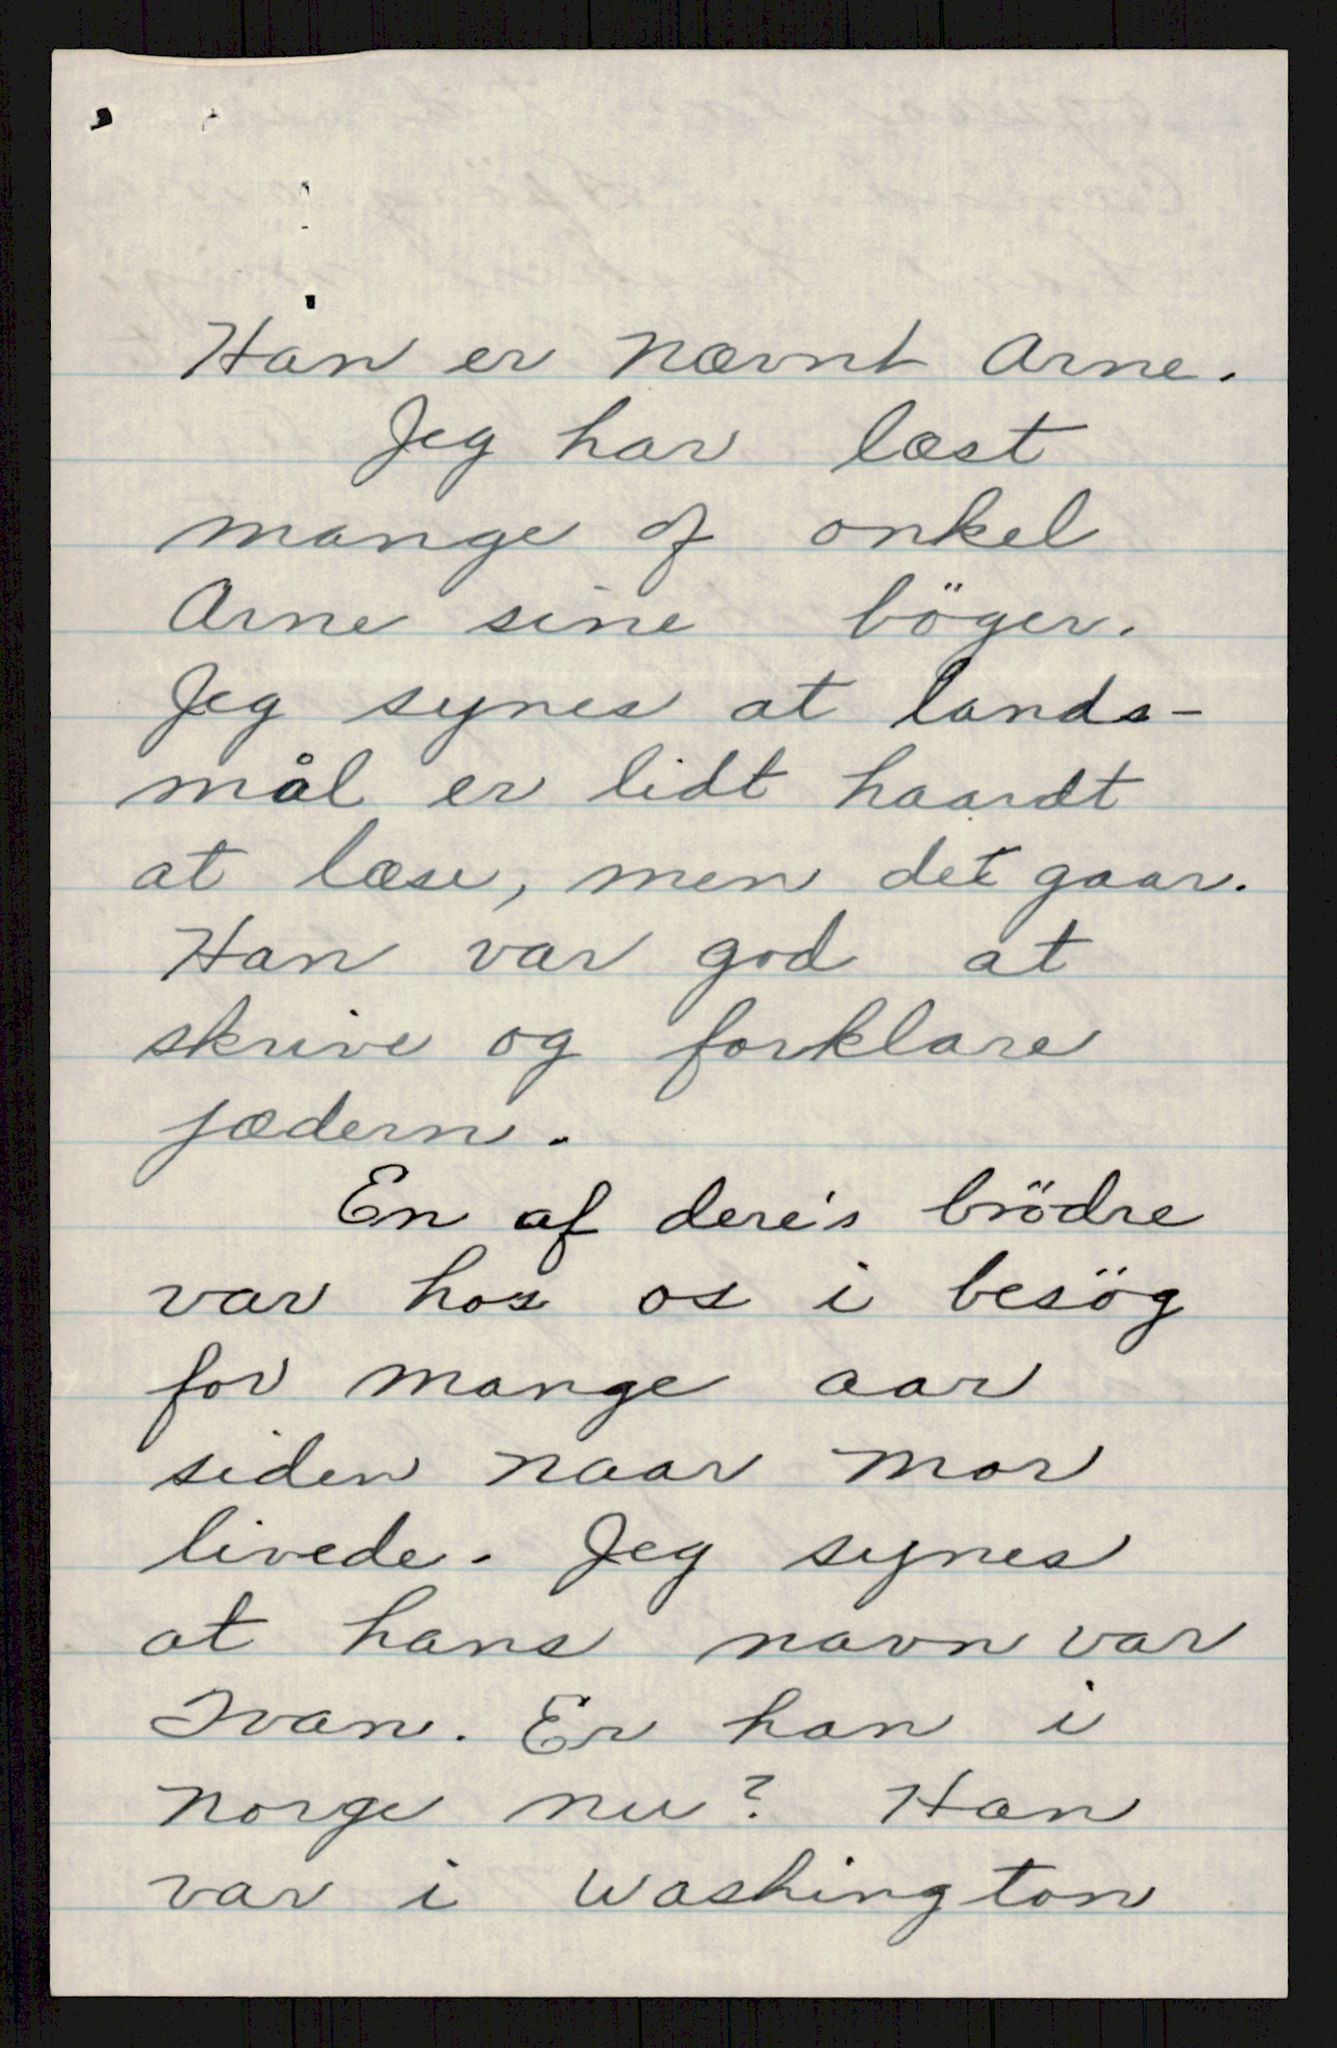 Han er nævnt Arne.
Jeg har læst
mange of onkel
Arne sine böger.
Jeg synes at lands-
mål er lidt haardt
at læse, men det gaar.
Han var god at
skrive og forklare
jædern.
En af dere's brödre
var hos os i besög
for mange aar
siden naar mor
livede. Jeg synes
at hans navn var
Ivan. Er han i
Norge nu? Han
var i Washington